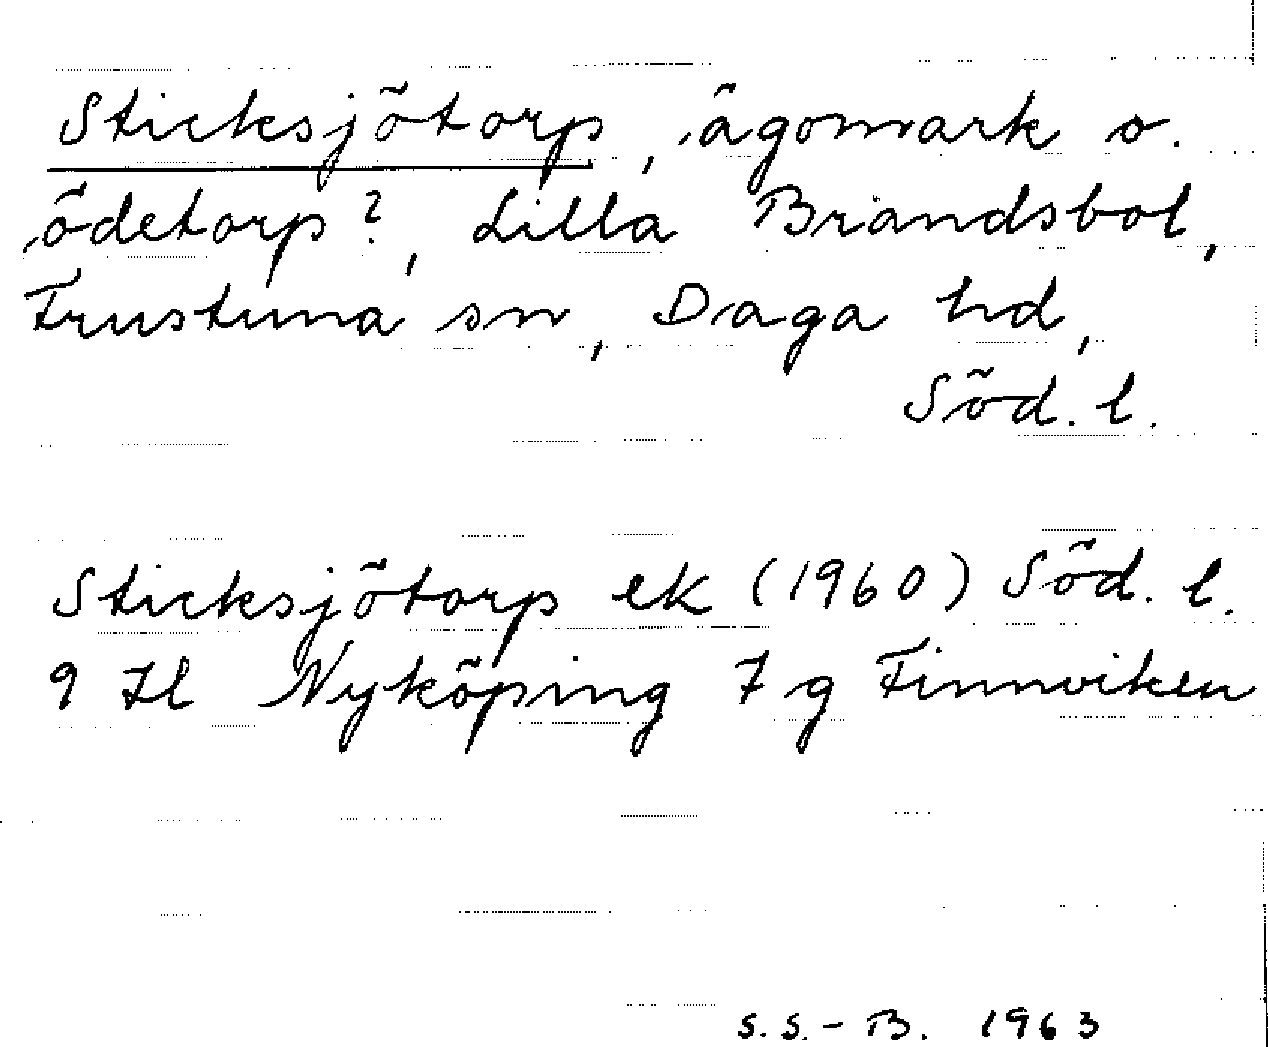 Sticksjötorp, ägomark o.
ödetorp?, Lilla Brandsbol,
Frustuna sn, Daga hd,
Söd. l.
Sticksjötorp ek (1960) Söd. l.
9 Il Nyköping 7 g Finnviken
S. S. - B. 1963